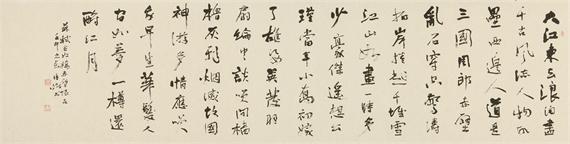 大江东去浪淘盡
千古风流人物故
壘西邊人道是
三國周郎赤壁
亂石穿空驚濤
拍岸捲起千堆雪
江山如畫一時多
少豪傑遙想公
瑾當年小喬初嫁
了雄姿英發羽
扇綸巾談笑間檣
櫓灰飛烟滅故國
神遊多情應笑
我早生華髮人
间如夢一樽還
酹江月